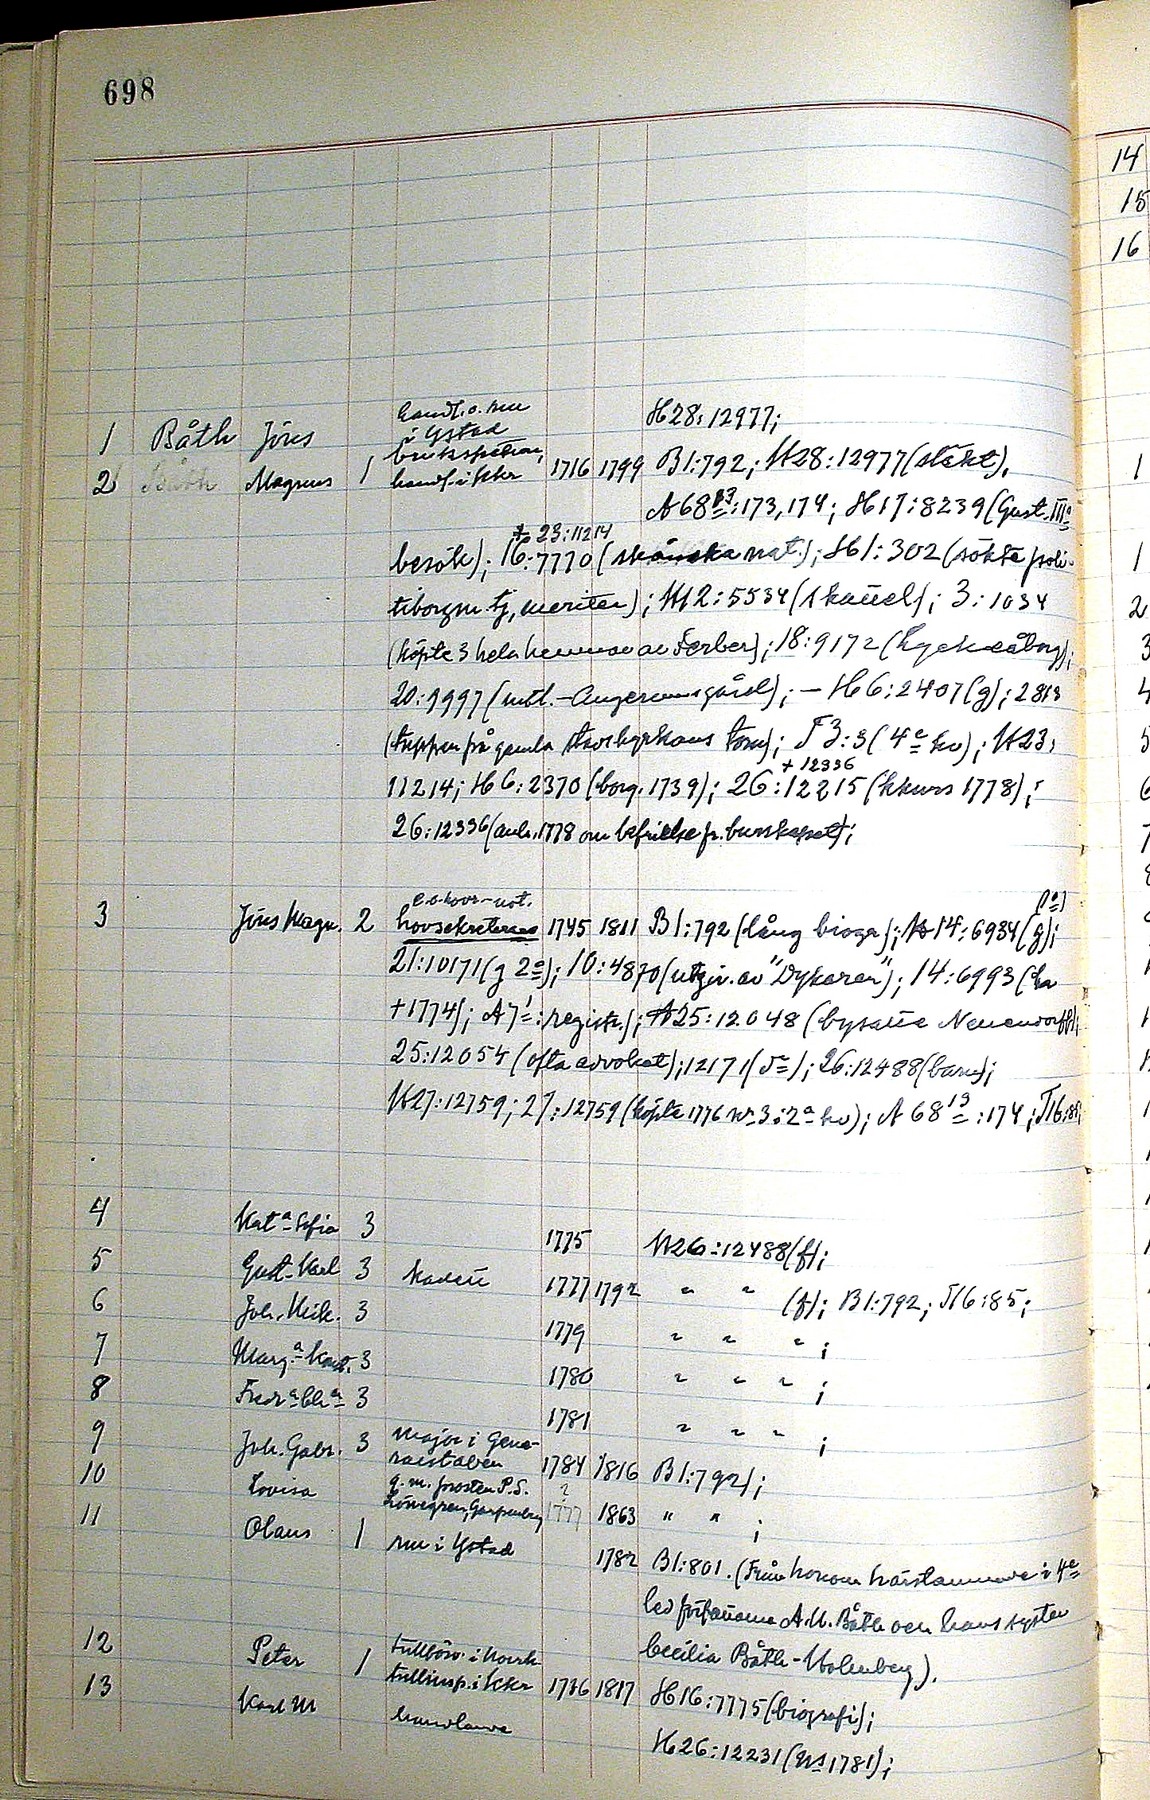 698
14
15
16
handl. o. rm
i Ystad
H28:12977;
1 Båth Jöns
brukspatron,
2 Båth Magnus 1 handl. i Kkr 1716 1799 B1:792; H28:12977 (släkt).
A68 13:173, 174; H17:8239 (Gust. III a
+ 23:11214
besök); 16:7770 (skånska nat.); H1:302 (sökte poli-
tiborgm. tj, meriter); H2:5534 (skauel); 3:1034
(köpte 3 hela hemman av Ferber); 18:9172 (Lyckeåborg);
20:9997 (mtl. - Angeramsgård); - H6:2407 (g); 2813
(tuppen på gamla storkyrkans torn); F3:3 (4e kv); H23:
+ 12336
11214; H6:2370 (borg. 1739); 26:12215 (kkurs 1778);
26:12336 (anh. 1778 om befrielse fr. burskapet);
e.o. hovr-not. (1a)
3 Jöns Magn. 2 hovsekreterare 1745 1811 B1:792 (lång biogr.); H14:6934 (g);
21:10171 (g 2a); 10:4870 (utgiv. av "Dykaren"); 14:6993 (
+1774); A7 1: registr.); H25:12048 (bysatte Neuendorff);
25:12054 (ofta advokat); 12171 ( ); 26:12488 (barn);
H27:12759; 27:12759 (köpte 1776 nr 3 i 2a kv); A68 13:174; F16:85;
4 Kata Sofia 3 1775 H26:12488 (f);
5 Gust. Karl 3 kadett 1777 1792 " " (f); B1:792; F16:85;
6 Joh. Henr. 3 1779 " " ";
7 Marg.a 3 1780 " " ";
8 Fredra Cha 3 1781 " " ";
9 Joh. Gabr. 3 major i Gene-
ralstaben 1784 1816 B1:792);
10 Lovisa g. m. prosten P.S.
Lönegren, Garpenberg ? 1777 1863 " " ;
11 Olaus 1 rm i Ystad 1782 B1:801. (Från honom härstammade i 4e
led författaren A.U. Bååth och hans syster
Cecilia Bååth-Holmberg).
12 Peter 1
tullinsp. i Kkr 1716 1817 H16:7775 (biografi);
13 Karl M handlande H26:12231 ( 1781);